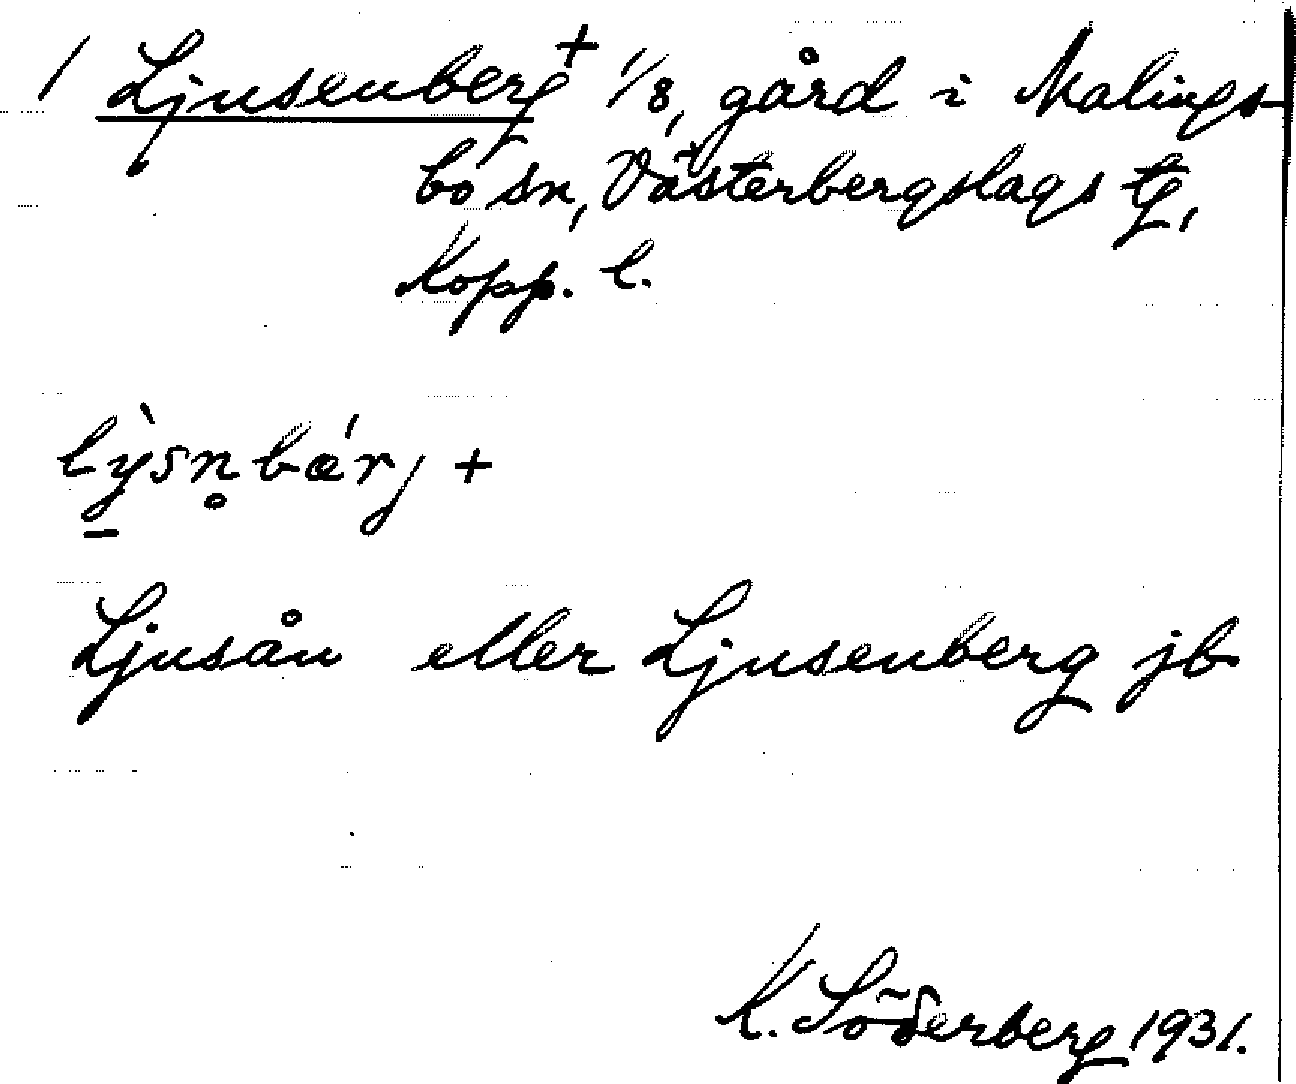 / Ljusenberg + 1/8, gård i Malings-
bo sn, Västerbergslags tg,
Kopp. l.
lỳsn̥bǽrj +
Ljusån eller Ljusenberg jb
K. Söderberg 1931.